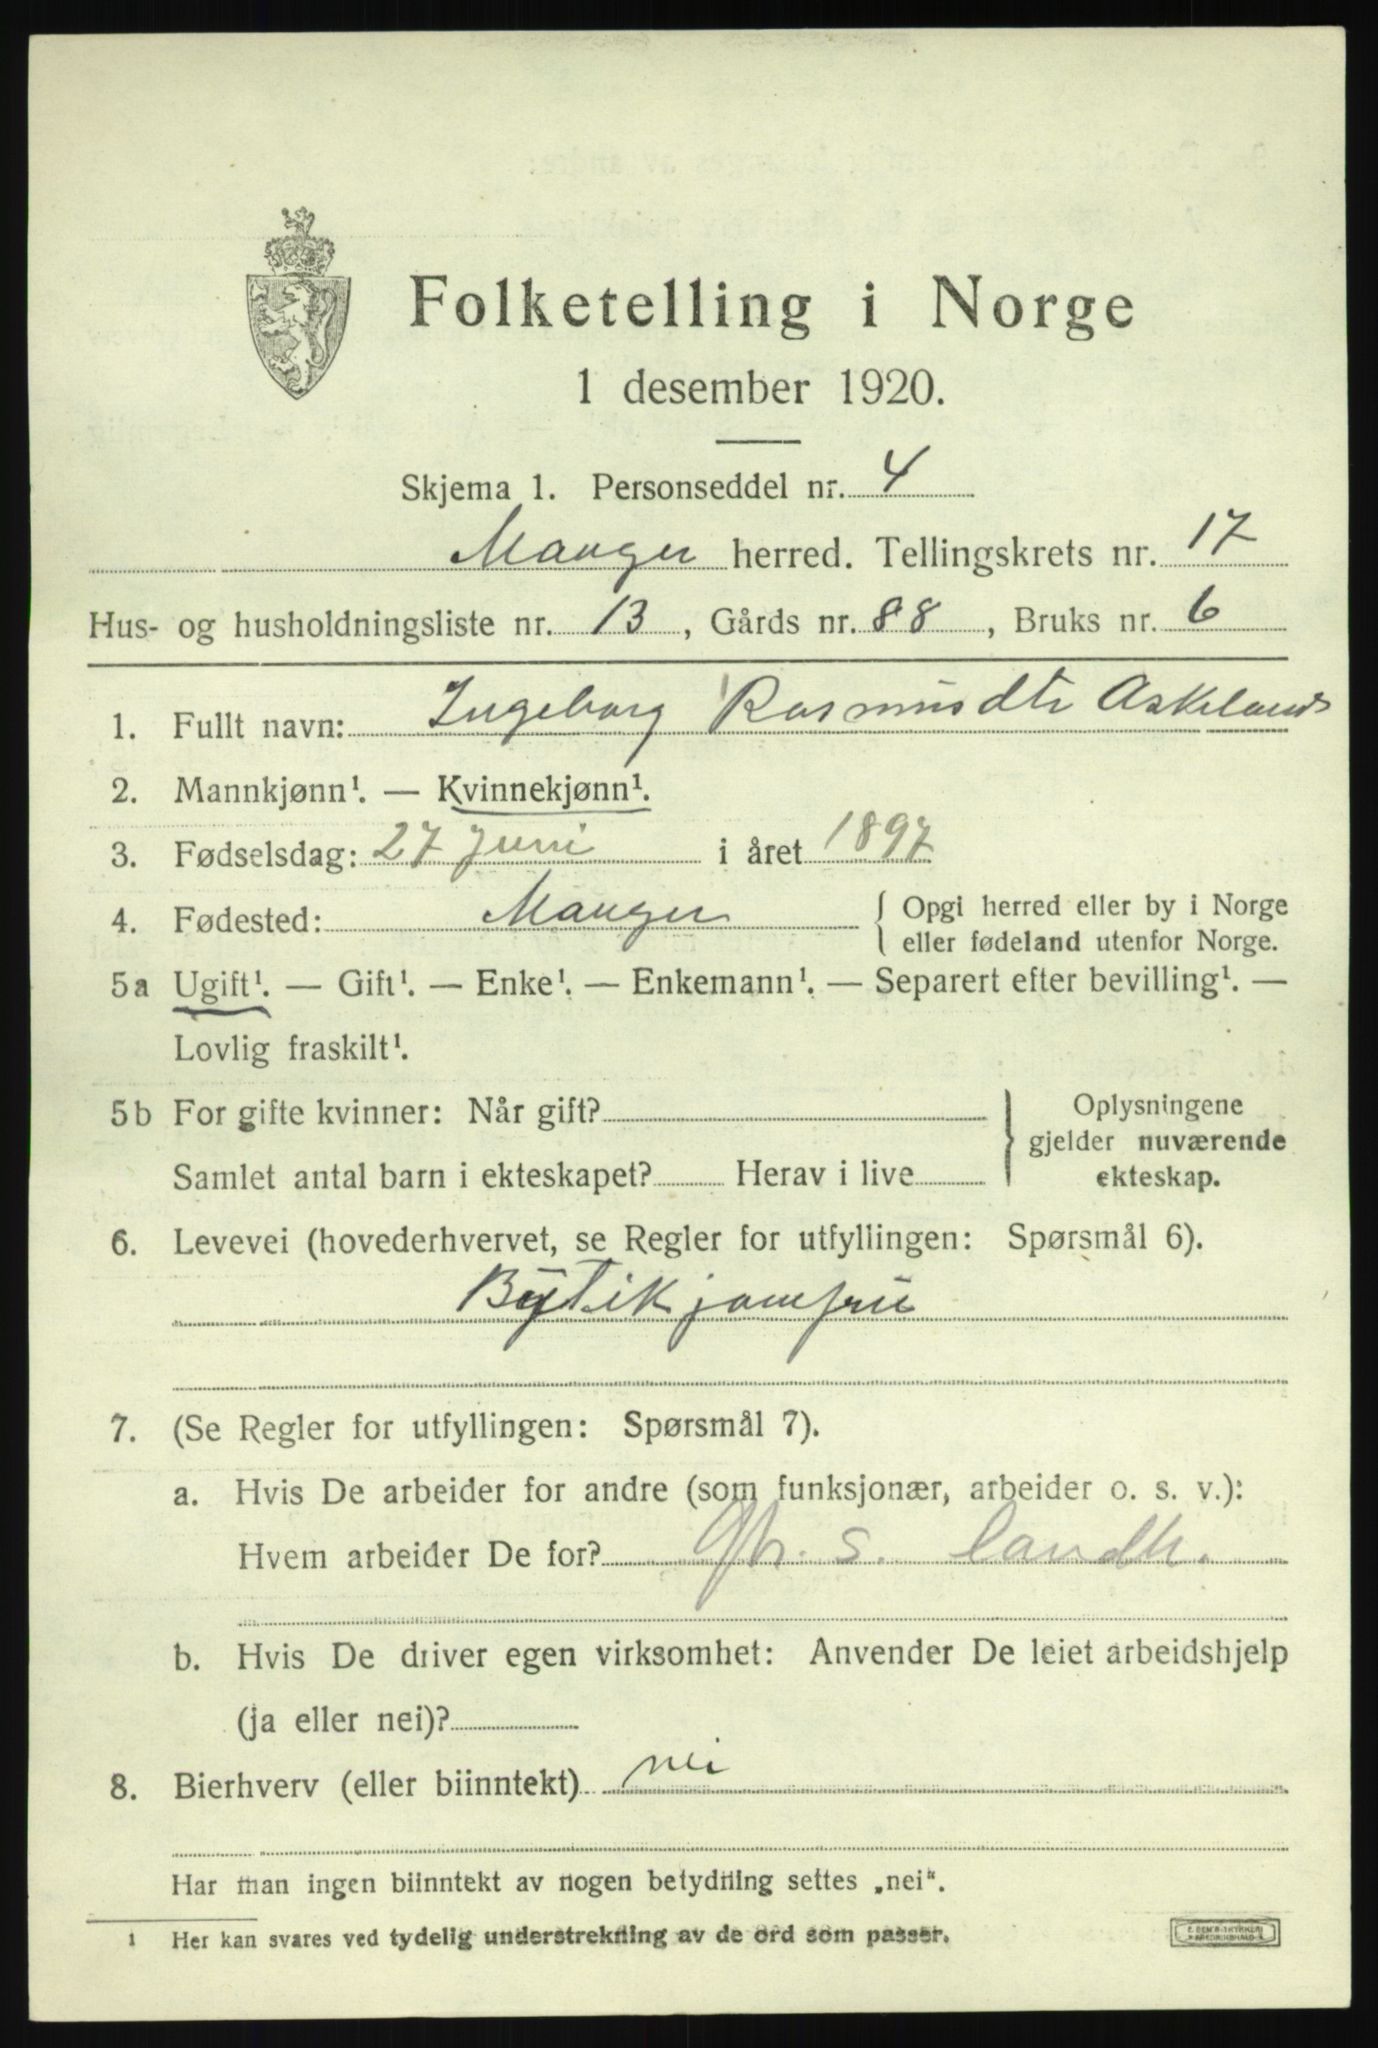 Folketelling i Norge
1 desember 1920.
Skjema 1. Personseddel nr. 4
Manger herred. Tellingskrets nr. 17
Hus- og husholdningsliste nr. 13, Gårds nr. 88, Bruks nr. 6
1. Fullt navn: Ingeborg Rasmusdtr Askeland
2. Mannkjønn¹. — Kvinnekjønn¹.
3. Fødselsdag: 27 juni i året 1897
4. Fødested: Manger { Opgi herred eller by i Norge
eller fødeland utenfor Norge.
5a Ugift¹. — Gift¹. — Enke¹. — Enkemann¹. — Separert efter bevilling¹. —
Lovlig fraskilt¹.
5b For gifte kvinner: Når gift? } Oplysningene
gjelder nuværende
Samlet antal barn i ekteskapet? Herav i live
ekteskap.
6. Levevei (hovederhvervet, se Regler for utfyllingen: Spørsmål 6).
Bytikjomfru
7. (Se Regler for utfyllingen: Spørsmål 7).
a. Hvis De arbeider for andre (som funksjonær, arbeider o. s. v.):
Hvem arbeider De for? s. landh.
b. Hvis De driver egen virksomhet: Anvender De leiet arbeidshjelp
(ja eller nei)?
8. Bierhverv (eller biinntekt) nei
Har man ingen biinntekt av nogen betydning settes „nei“.
1 Her kan svares ved tydelig understrekning av de ord som passer.